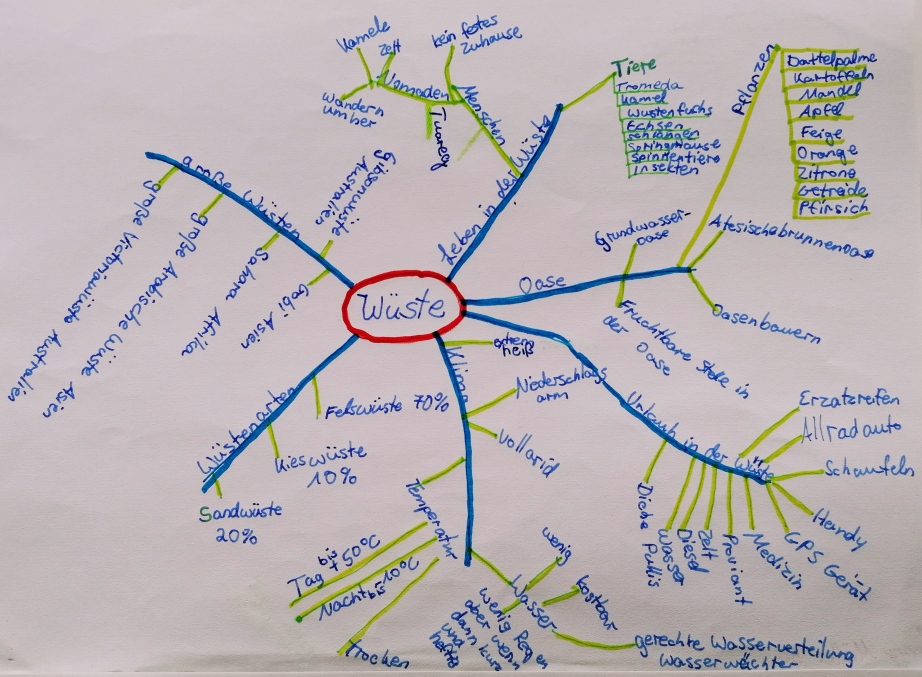 Wüste
Leben in der Wüste
Menschen
kein festes
Zuhause
Nomaden
Kamele
Zelt
wandern
umher
Tuareg
Tiere
Tromeda
Kamel
Wüstenfuchs
Echsen
schlangen
Springmäuse
Spinnentiere
Insekten
Oase
Grundwasser-
oase
Fruchtbare Stelle in
der Oase
Pflanzen
Dattelpalme
Kartoffeln
Mandel
Apfel
Feige
Orange
Zitrone
Getreide
Pfirsich
Atesischebrunnenoase
Oasenbauern
Urlaub in der Wüste
Erzatzreifen
Allradauto
Schaufeln
Handy
GPS Gerät
Medizin
Proviant
Zelt
Diesel
Wasser
Dicke
Pullis
Klima
extrem
heiß
Niederschlags
arm
vollarid
Temperatur
Tag bis +50°C
Nacht bis -10°C
trocken
Wasser
wenig
kostbar
wenig Regen
aber wenn
dann kurz
und
heftig
gerechte Wasserverteilung
Wasserwächter
Wüstenarten
Felswüste 70%
Kieswüste
10%
Sandwüste
20%
große Wüsten
große Victoriawüste Australien
große Arabische Wüste Asien
Sahara Afrika
Gobi Asien
Gibsonwüste
Australien